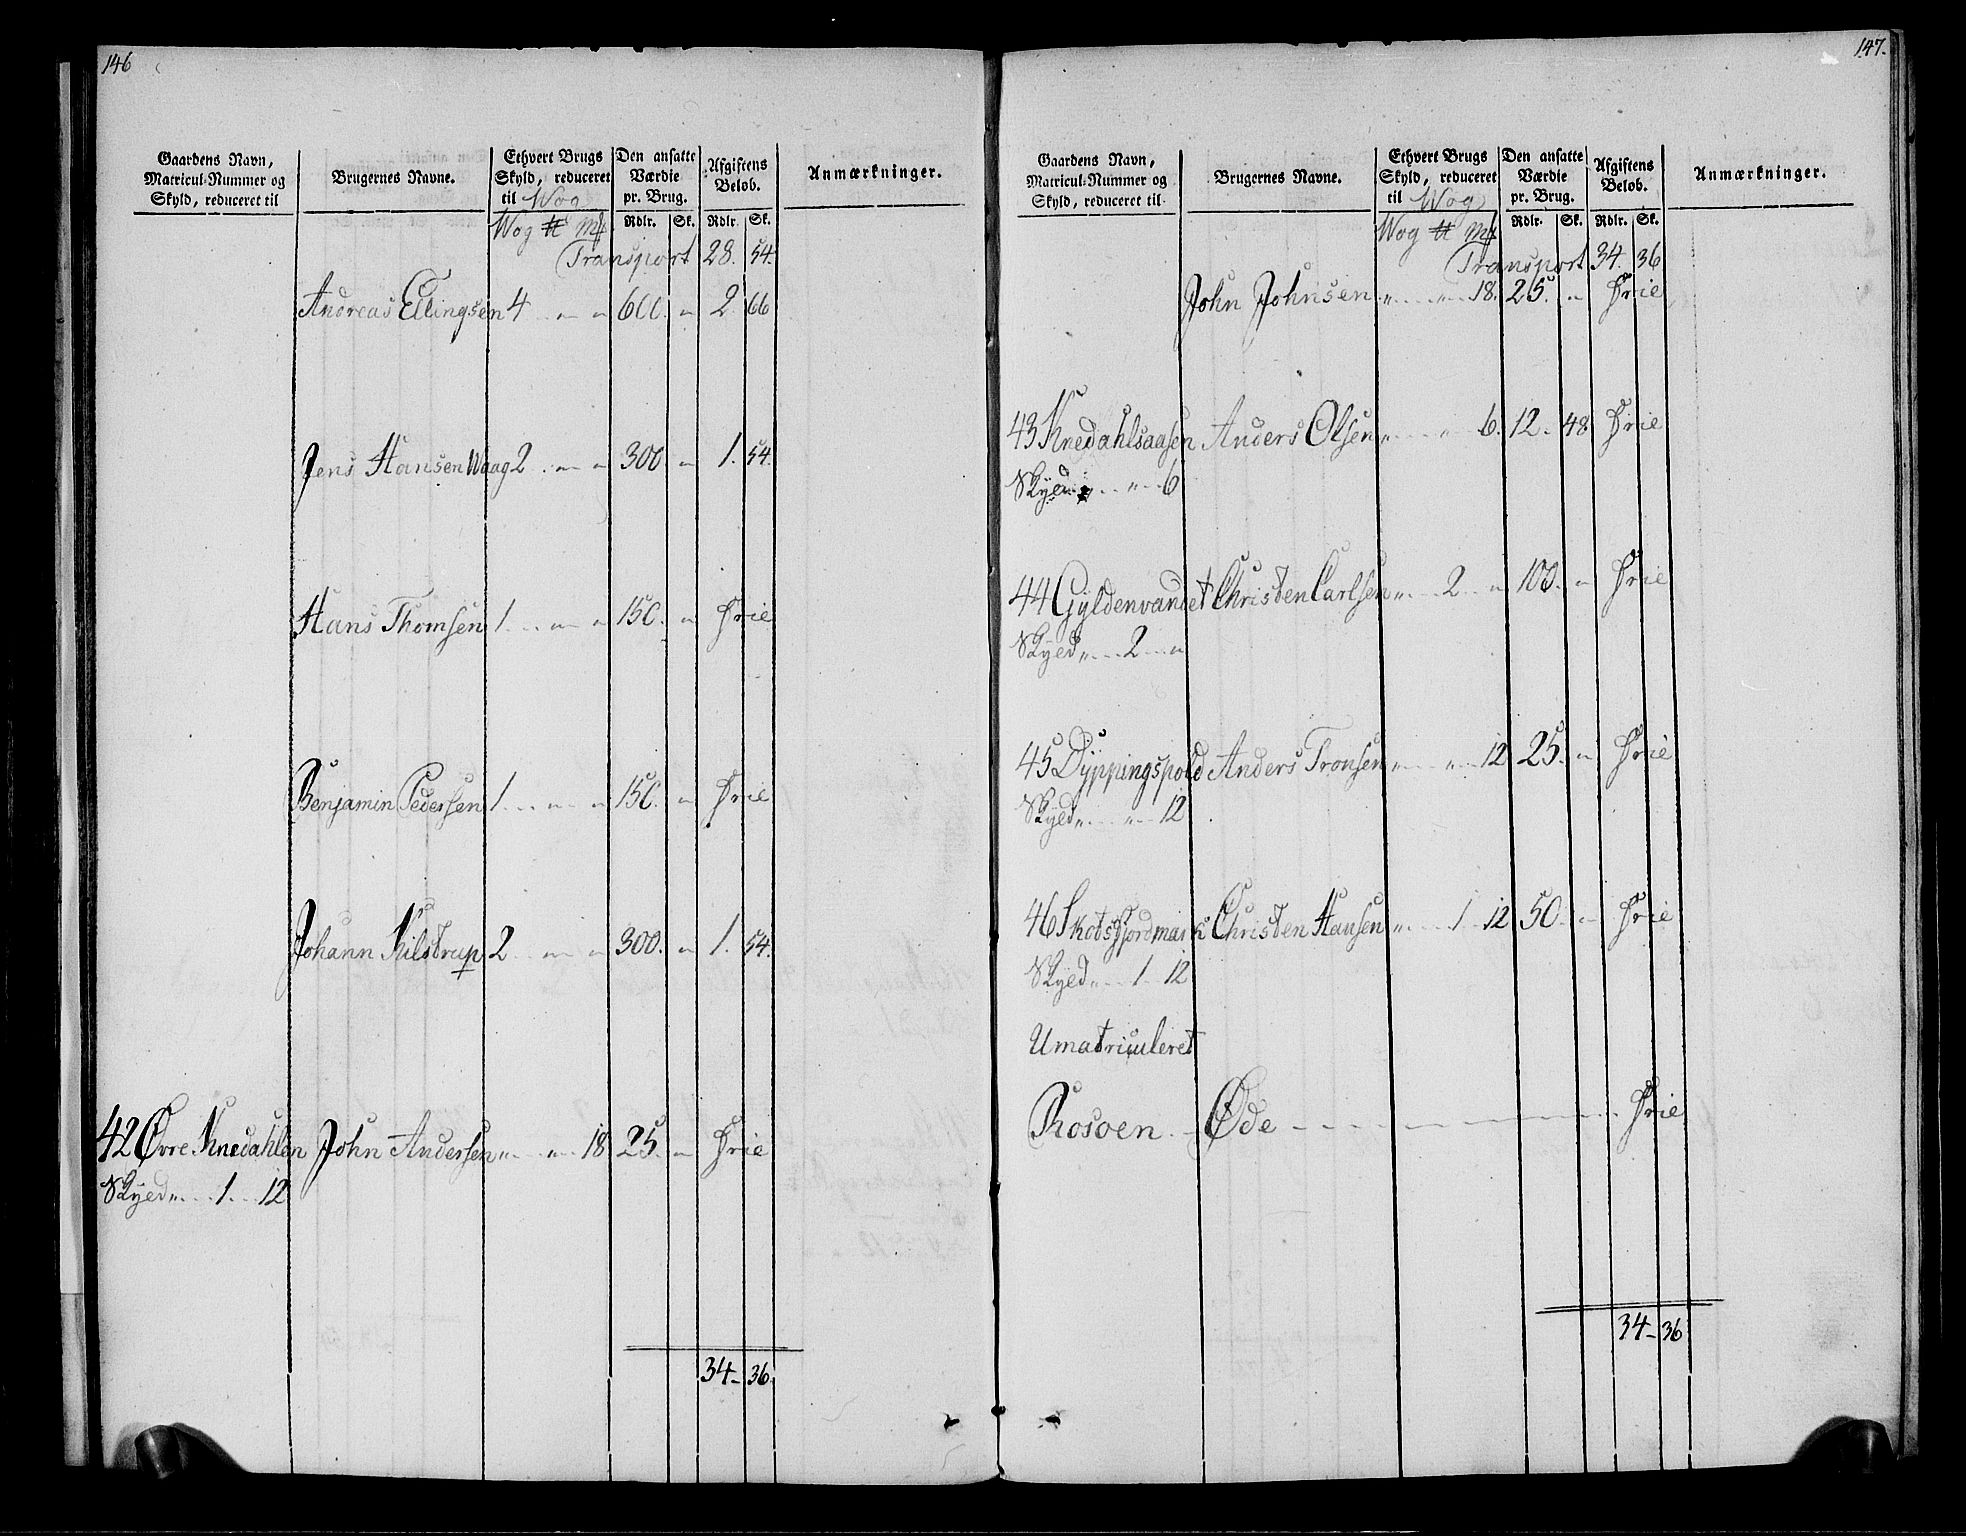 146
Gaardens Navn, Matricul-Nummer og Skyld, reduceret til
Brugernes Navne.
Ethvert Brugs Skyld, reduceret til Wog
Den ansatte Værdie pr. Brug.
Afgiftens Beløb.
Anmærkninger.
Wog ℔ Mk Rdlr. Sk. Rdlr. Sk.
Transport 28. 54.
Andreas Ellingsen 4 " " 600. " 2. 66
Jens Hansen Waag 2 " " 300 " 1. 54.
Hans Thomsen 1 " " 150. " Frie
Benjamin Pedersen 1 " " 150. " Frie
Johann Kilstrup 2 " " 300. " 1. 54.
42 Øvre Knedahlen John Andersen " " 18 25. " Frie
Skyld " 1 12
34 - 36.
147.
Gaardens Navn, Matricul-Nummer og Skyld, reduceret til
Brugernes Navne.
Ethvert Brugs Skyld, reduceret til Wog
Den ansatte Værdie pr. Brug.
Afgiftens Beløb.
Anmærkninger.
Wog ℔ Mk Rdlr. Sk. Rdlr. Sk.
Transport 34. 36
John Johnsen " " 18. 25. " Frie
43 Knedahlsaasen Anders Olsen " " 6. 12. 48 Frie
Skyld " " 6
44 Gyldenvandet Christen Carlsen " 2 " 100. " Frie
Skyld " 2 "
45 Dyppingspold Anders Tronsen " " 12 25. " Frie
Skyld " " 12
46 Skotsfjordmark Christen Hansen " 1 12 50. " Frie
Skyld " 1 12
Umatriculeret
Rosøen Øde Frie
34 - 36